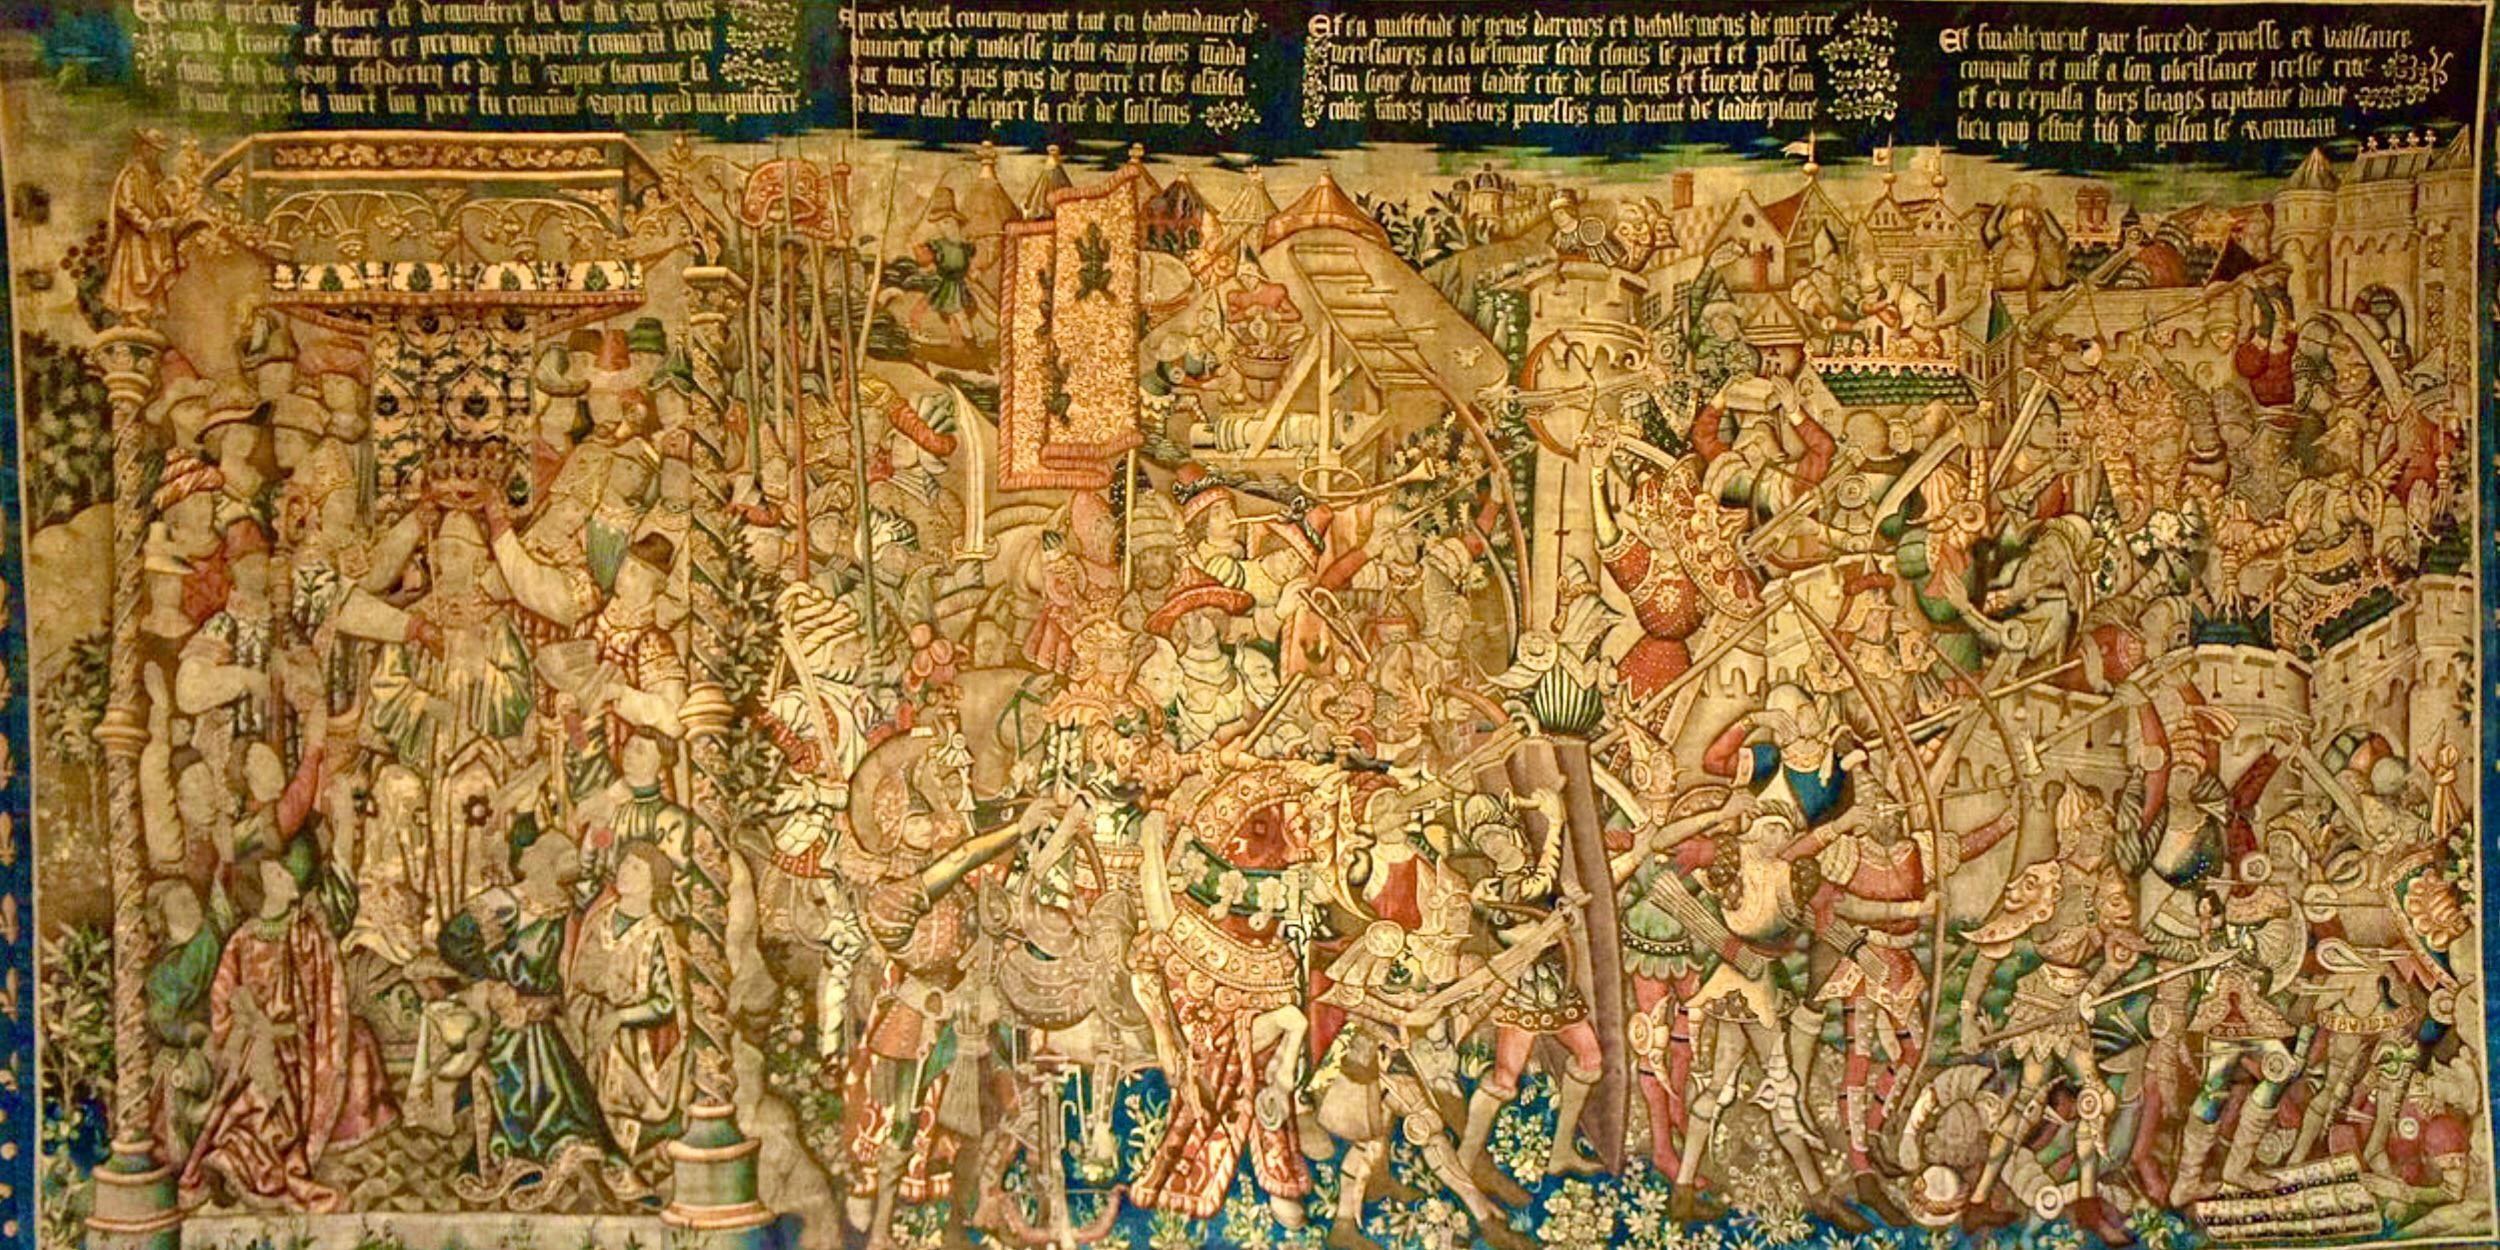 En ceste presente histoire est demonstree la vie du Roy clouis
Roy de france et traite ce premier chapitre comment ledit
clouis filz du Roy childericq et de la Royne basoune sa
femme apres la mort son pere fu couronne Roy en grad magnificence
Apres lequel couronnement tait en habondance de
honneur et de noblesse icelui Roy clouis mada
par tous les pais gens de guerre et les asabla
tendant aller assegier la cite de soissons
Et en multitude de gens darmes et habillemens de guerre
necessaires a la besongne ledit clouis se part et posa
son siege deuant ladite cite de soissons et furent de son
coste faites pluseurs proesses au deuant de ladite place
Et finablement par force de proesse et vaillance
conquist et mist a son obeissance icelle cite
et en expulsa hors soages capitaine dudit
lieu qui estoit filz de gilon le Roumain